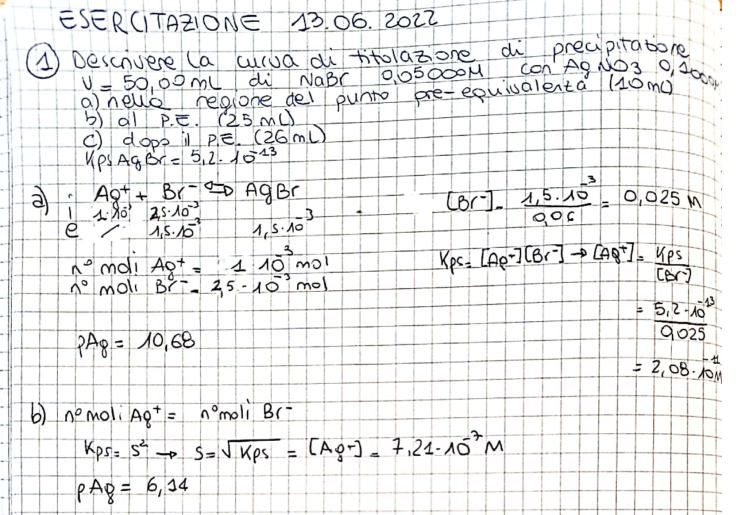 ESERCITAZIONE 13.06.2022
① Descrivere la curva di titolazione di precipitazione
V = 50,00 mL di NaBr 0,05000M con AgNO3 0,1000M
a) nella regione del punto pre-equivalenza (10 mL)
b) al P.E. (25 mL)
c) dopo il P.E. (26 mL)
Kps AgBr = 5,2 · 10⁻¹³
a) Ag⁺ + Br⁻ ⇆ AgBr
i 1·10⁻³ 2,5·10⁻³
e / 1,5·10⁻³ 1,5·10⁻³
[Br⁻] = 1,5·10⁻³ / 0,06 = 0,025 M
n° moli Ag⁺ = 1 · 10⁻³ mol
n° moli Br⁻ = 2,5 · 10⁻³ mol
Kps = [Ag⁺][Br⁻] → [Ag⁺] = Kps / [Br⁻]
= 5,2·10⁻¹³ / 0,025
= 2,08·10⁻¹¹ M
pAg = 10,68
b) n° moli Ag⁺ = n° moli Br⁻
Kps = s² → s = √Kps = [Ag⁺] = 7,21·10⁻⁷ M
pAg = 6,14